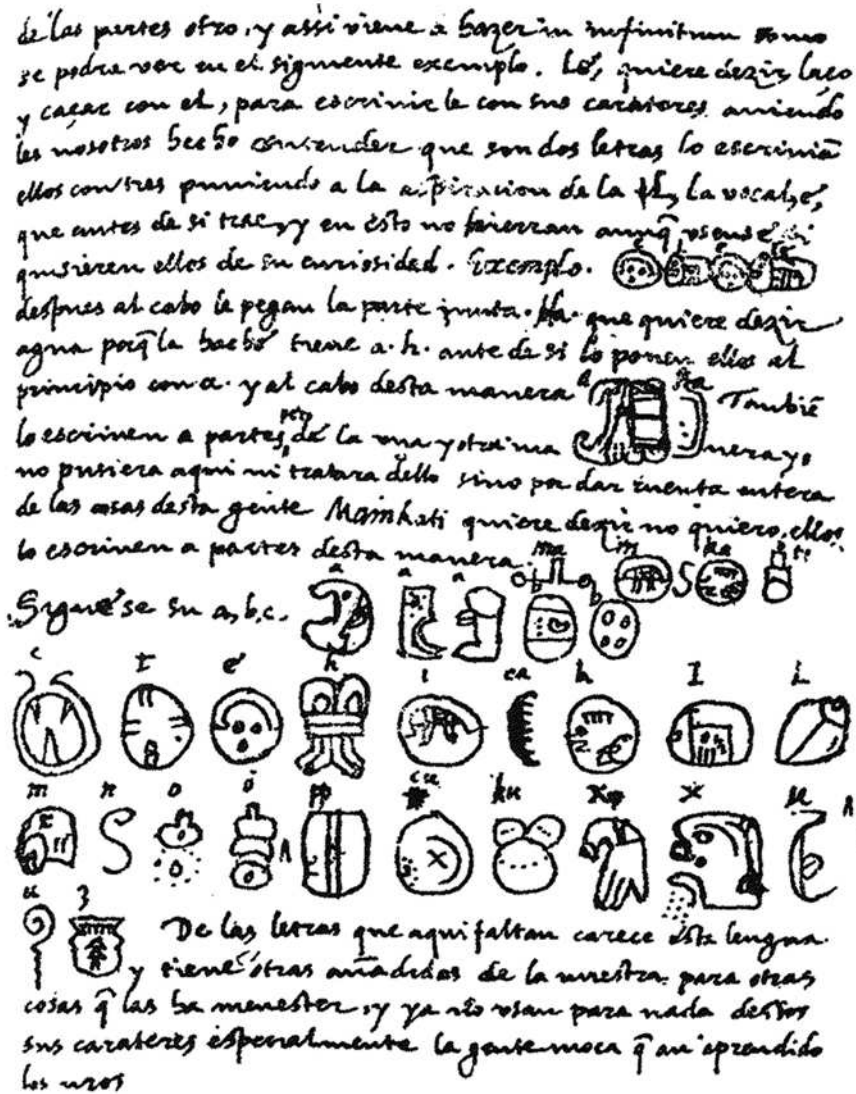 de las partes otro, y assi viene a hazer in infinitum como
se podra ver en el siguiente exemplo. Lé, quiere dezir laço
y caçar con el, para escrivirle con sus carateres, aviendo
les nosotros hecho entender que son dos letras lo escrivian
ellos con tres puniendo a la aspiracion de la l, la vocal é,
que antes de si trae, y en esto no hierran aunq̄ usense si
quisieren ellos de su curiosidad. Exemplo.
despues al cabo le pegan la parte junta. Ha. que quiere dezir
agua porq̄ la hache tiene a. h. ante de si lo ponen ellos al
principio con a. y al cabo desta manera a ha Tambiē
lo escriven a partes, pero de la una y otra ma nera yo
no pusiera aqui ni tratara dello sino por dar cuenta entera
de las cosas desta gente Mainkati quiere dezir no quiero, ellos
lo escriven a partes desta manera. ma i n ka ti
Siguese su a, b, c. a a a b b
c t é h i ca k l l
m n o o pp cu ku x x u
u z De las letras que aqui faltan carece esta lengua.
y tiene otras añadidas de la nuestra para otras
cosas q̄ las ha menester, y ya no usan para nada destos
sus carateres especialmente la gente moça q̄ an aprendido
los nros